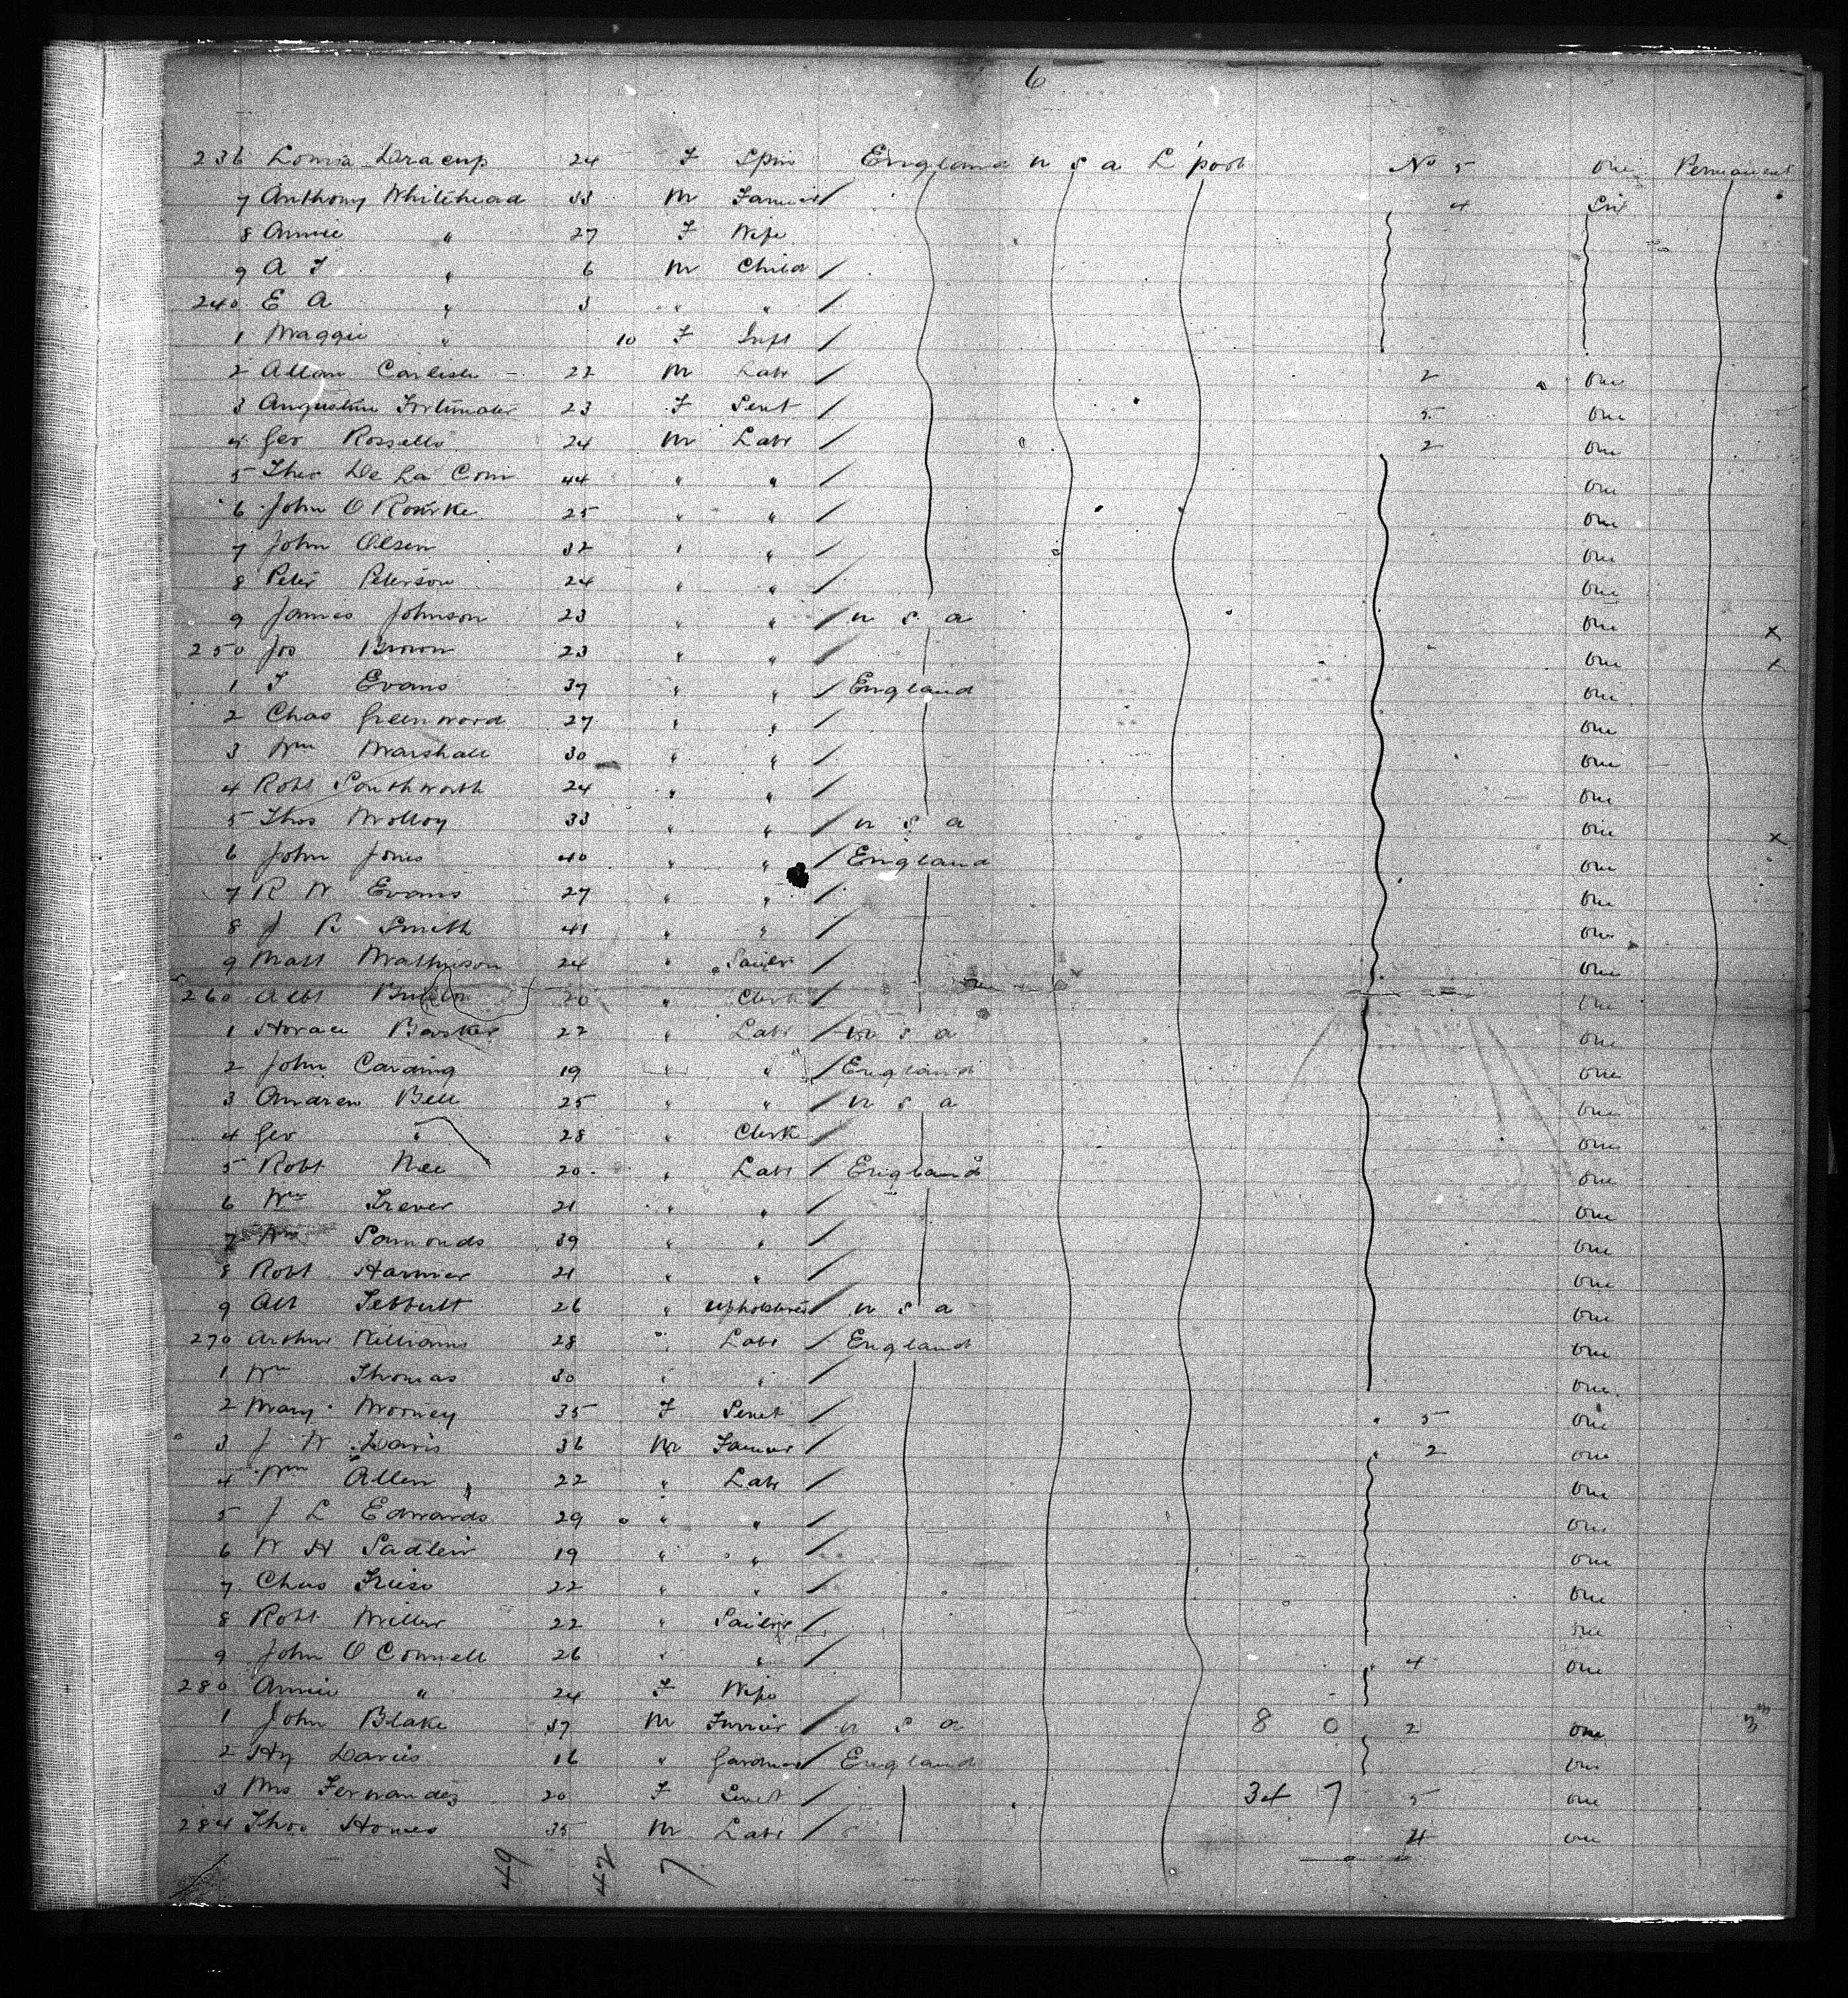 6
236 Dracup 24 F Spin England u s a L'pool No 5 one Permanent
7 Anthony Whitehead 33 M Farmer / 4 Six
8 Annie " 27 F Wife
9 A F " 6 M Child /
240 E A " 3 " " /
1 Maggie " 10 F Inft /
2 Allan Carlisle 22 M Labr / 2 one
3 23 F Servt / 5 one
4 Geo 24 M Labr / 2 one
5 De La 44 " " / one
6 John O Rourke 25 " " / one
7 John Olsen 32 " " / one
8 Peter Peterson 24 " " / one
9 James Johnson 23 " " / u s a one x
250 Jos Brown 23 " " / one x
1 T Evans 37 " " / England one
2 Chas Greenwood 27 " " / one
3 Wm Marshall 30 " " / one
4 Robt Southworth 24 " " / one
5 Thos Molloy 33 " " / u s a one x
6 John Jones 40 " " / England one
7 R W Evans 27 " " / one
8 J B Smith 41 " " / one
9 Matt Mathewson 24 " Sailor / one
260 Albt 20 " Clerk / one
1 Horace Barker 22 " Labr / u s a one
2 John Carding 19 " " / England one
3 Andrew Bell 25 " " / u s a one
4 Geo " 28 " Clerk / one
5 Robt Nee 20 " Labr / England one
6 Wm Trever 21 " " / one
7 Wm Samonds 39 " " / one
8 Robt Harmer 21 " " / one
9 Alf Tebbutt 26 " upholsterer / u s a one
270 Arthur Williams 28 " Labr / England one
1 Wm Thomas 30 " " / one
2 Mary Mooney 35 F Servt / 5 one
3 J W Davis 36 M Farmer / 2 one
4 Wm Allen 22 " Labr / one
5 J L Edwards 29 " " / one
6 W H Sadleir 19 " " / one
7 Chas 22 " " / one
8 Robt Miller 22 " Sailor / one
9 John O Connell 26 " " / 4 one
280 Annie " 24 F Wife
1 John Blake 37 M Furrier / u s a 8 0 2 one
2 Hy Davies 16 " Gardner / England one
3 Mrs Fernandez 20 F Servt / 34 7 5 one
284 Thos Homes 35 M Labr / 4 one
49 42 7